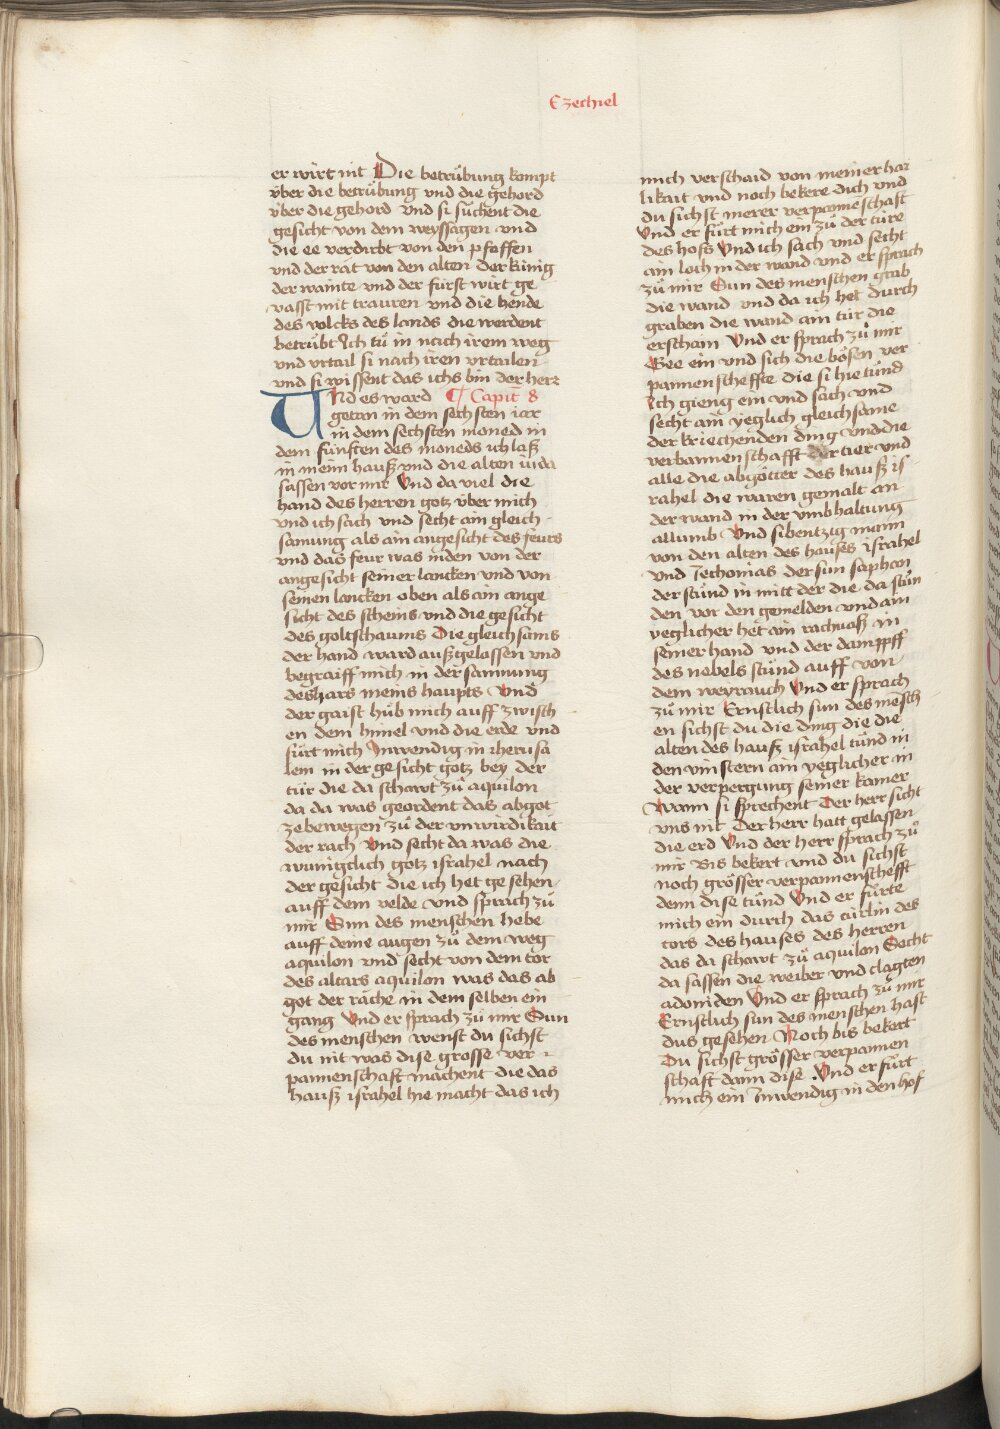 Ezechiel
er wirt nit Die betrübung kompt
über die betrübung vnd die gehord
über die gehord vnd si süchent die
gesicht von dem weyssagen vnd
die ee verdirbt von den pfaffen
vnd der rat von den alten der künig
der wainte vnd der fürst wirt ge
vasst mit trauren vnd die hende
des volcks des lands die werdent
betrübt Ich tů in nach irem weg
vnd vrtail si nach iren vrtailen
vnd si wissent das ichs bin der herr
VNd es ward ¶ Capit̄ 8
getan in dem sechsten iar
in dem sechsten moned in
dem fünften des moneds ich saß
in meinn hauß vnd die alten iuda
sassen vor mir Vnd da viel die
hand des herren gotz über mich
vnd ich sach vnd secht ain gleich
samung als ain angesicht des feurs
vnd das feur was inden von der
angesicht seiner lancken vnd von
seinen lancken oben als ain ange
sicht des scheins vnd die gesicht
des goltschaums Die gleichsams
der hand ward außgelassen vnd
begraiff mich in der samnung
des hars meins haupts Vnd
der gaist hůb mich auff zwisch
en dem himel vnd die erde vnd
fürt mich Inwendig in iherusa
lem in der gesicht gotz bey der
tür die da schawt zů aquilon
da da was geordent das abgot
ze bewegen zů der vnwirdikait
der rach Vnd secht da was die
wunigclich gotz israhel nach
der gesicht die ich het gesehen
auff dem velde vnd sprach zů
mir Sun des menschen hebe
auff deine augen zů dem weg
aquilon vnd secht von dem tor
des altars aquilon was das ab
got der räche in dem selben ein
gang Vnd er sprach zů mir Sun
des menschen wenst du sichst
du nit was dise grosse ver
pannenschaft machent die das
hauß israhel hie macht das ich
mich verschaid von meiner hai
likait vnd noch bekere dich vnd
du sichst merer verpanneschaft
Vnd er fürt mich ein zů der türe
des hofs Vnd ich sach vnd secht
ain loch in der wand vnd er sprach
zů mir Sun des menschen grab
die wand vnd da ich het durch
graben die wand ain tür die
erschain Vnd er sprach zů mir
Gee ein vnd sich die bösen ver
pannenscheffte die si hie tůnd
Ich gieng ein vnd sach vnd
secht ain yeglich gleichsame
der kriechenden ding vnd die
verbannenschafft der tier vnd
alle die abgötter des hauß is
rahel die waren gemalt an
der wand in der vmbhaltung
allumb Vnd sibentzig mann
von den alten des hauses israhel
vnd Jechonias der sun saphan
der stůnd in mitt der die da stůn
den vor den gemelden vnd ain
yeglicher het ain rachvaß in
seiner hand vnd der dampff
des nebels stůnd auff von
dem weyrauch Vnd er sprach
zů mir Ernstlich sun des mēsch
en sichst du die ding die die
alten des hauß israhel tůnd in
den vinstern ain yeglicher in
der verpergung seiner kamer
Wann si sprechent Der herr sicht
vns nit Der herr hatt gelassen
die erd Vnd der herr sprach zů
mir Bis bekert vnd du sichst
noch grösser verpannenschefft
denn dise tůnd Vnd er fürte
mich ein durch das türlin des
tors des hauses des herren
das da schawt zů aquilon Secht
da sassen die weiber vnd clagten
adoniden Vnd er sprach zů mir
Ernstlich sun des menschen hast
dus gesehen Noch bis bekert
Du sichst grösser verpannen
schaft dann dise Vnd er fürt
mich ein Inwendig in den hof